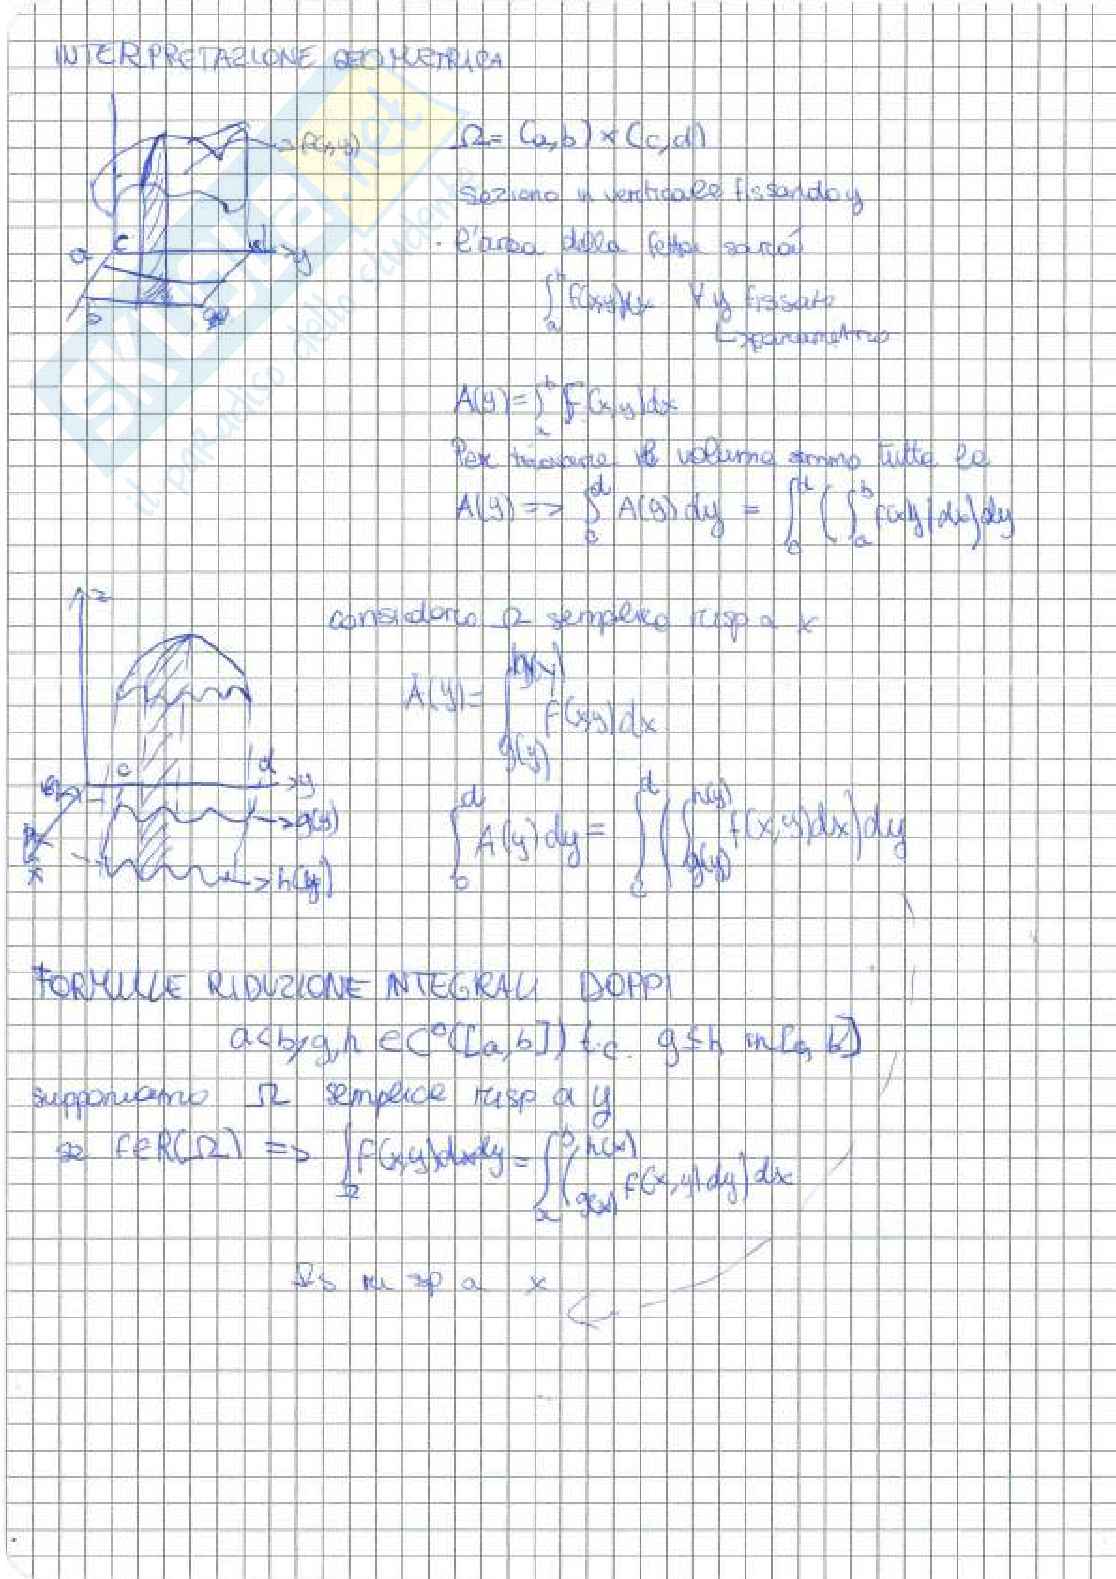 INTERPRETAZIONE GEOMETRICA
f(x,y)
Ω = (a,b) × (c,d)
seziono in verticale fissando y
l'area della fetta sarà
a c d y
b
∫_a^b f(x,y)dx ∀ y fissato
↳ parametro
A(y) = ∫_a^b f(x,y)dx
Per trovare il volume sommo tutte le
A(y) => ∫_c^d A(y) dy = ∫_c^d (∫_a^b f(x,y)dx)dy
z
considero Ω semplice risp a x
A(y) = ∫_{g(y)}^{h(y)} f(x,y)dx
c d y
g(y)
h(y)
x
∫_c^d A(y)dy = ∫_c^d (∫_{g(y)}^{h(y)} f(x,y)dx)dy
FORMULE RIDUZIONE INTEGRALI DOPPI
a<b, g,h ∈ C°([a,b]) t.c. g≤h in [a,b]
supponiamo Ω semplice risp a y
se f∈R(Ω) => ∫_Ω f(x,y)dxdy = ∫_a^b (∫_{g(x)}^{h(x)} f(x,y)dy)dx
risp a x
SKUOLA.net
il paradiso dello studente